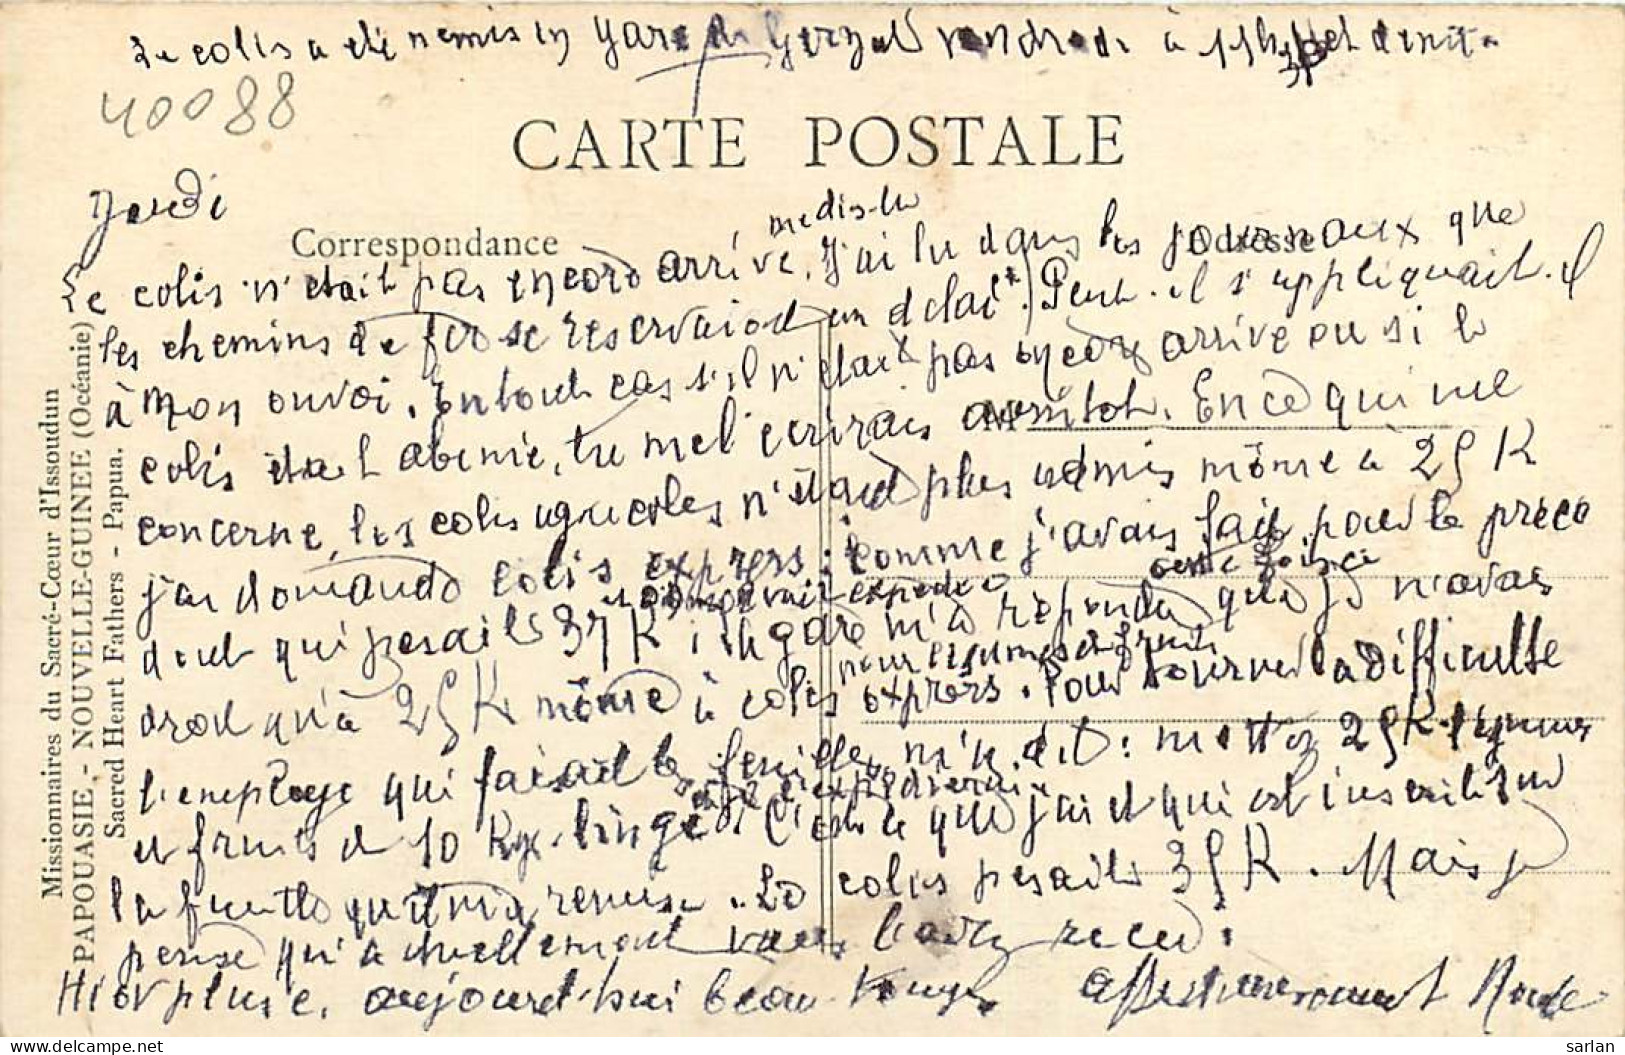 Le colis a été remis en gare de Gerzat vendredi à 11h et demie
30
40088
CARTE POSTALE
Jeudi
Correspondance
Adresse
medis-tu
Le colis n'était pas encore arrivé, J'ai lu dans les journaux que
les chemins de fer se réservaient un délai. Peut-il s'appliquait-il
à mon envoi. En tout cas s'il n'était pas encore arrivé ou si le
colis était abimé, tu me l'écrirais aussitot. En ce qui me
concerne, les colis agricoles n'étant plus admis même à 25 K
j'ai demandé colis express : comme j'avais fait pour le précé
dent qui pesait 37 K la gare m'a répondu que je n'avais
cette fois ci
expédié
droit qu'à 25 K même à colis express. Pour tourner la difficulté
pour légumes et fruits
l'employé qui faisait la feuille, m'a dit : mettez 25 K légumes
et fruits et 10 Kg linge. C'est ce que j'ai et qui est inscrit sur
et je l'expédierai
la feuille qu'il m'a remise. Le colis pesait 35 K. Mais je
pense qu'actuellement vous l'avez reçu.
Hier pluie, aujourd'hui beau temps. affectueusement
Missionnaires du Sacré-Cœur d'Issoudun
PAPOUASIE. - NOUVELLE-GUINEE (Océanie)
Sacred Heart Fathers - Papua.
sarlan